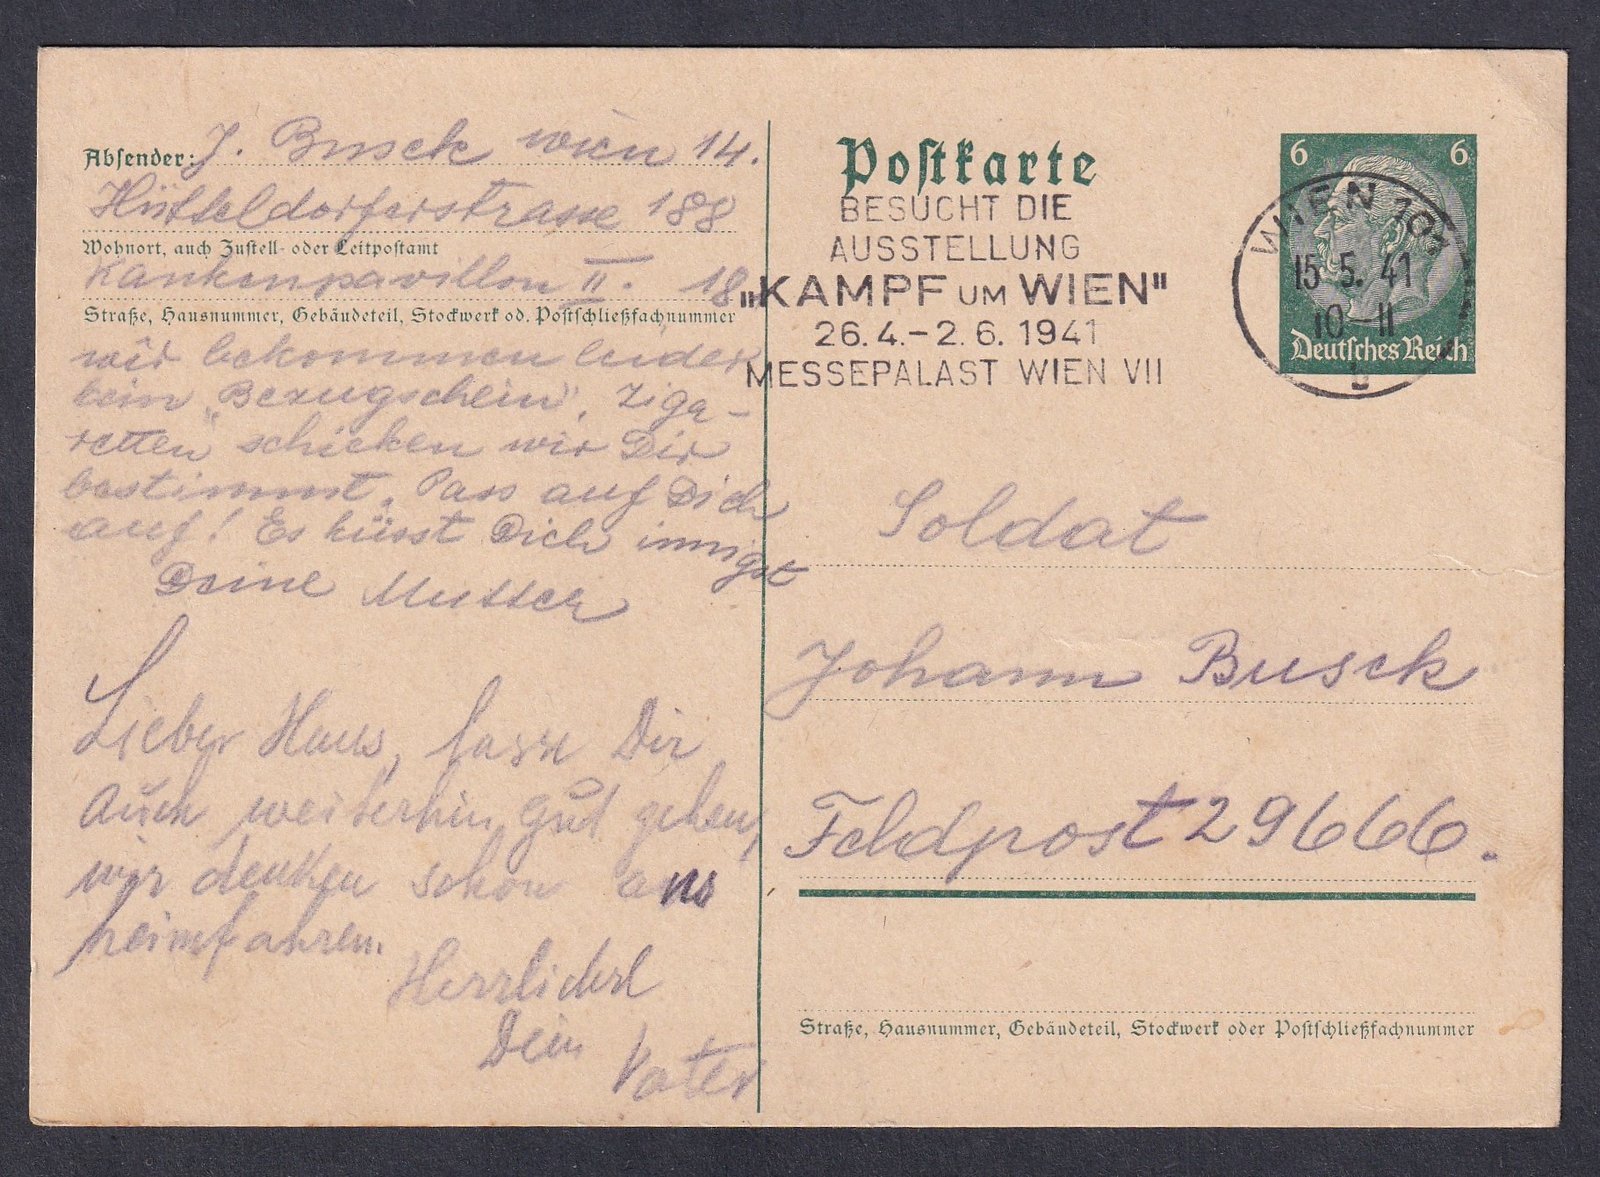 Absender: J. Busck Wien 14.
Hütteldorferstrasse 188
Wohnort, auch Zustell- oder Leitpostamt
Kankenpavillon II. 18
Straße, Hausnummer, Gebäudeteil, Stockwerk od. Postschließfachnummer
wir bekommen leider
kein „Bezugschein". Ziga-
retten schicken wir Dir
bestimmt. Pass auf Dich
auf! Es küsst Dich innigst
Deine Mutter
Lieber Hans, lasse Dir
auch weiterhin gut gehen,
wir denken schon ans
heimfahren.
Herzlichst
Dein Vater
Postkarte
BESUCHT DIE
AUSSTELLUNG
„KAMPF UM WIEN"
26.4.-2.6.1941
MESSEPALAST WIEN VII
6 6
Deutsches Reich
WIEN 101
15.5.41
10-11
b
Soldat
Johann Busck
Feldpost 29666.
Straße, Hausnummer, Gebäudeteil, Stockwerk oder Postschließfachnummer